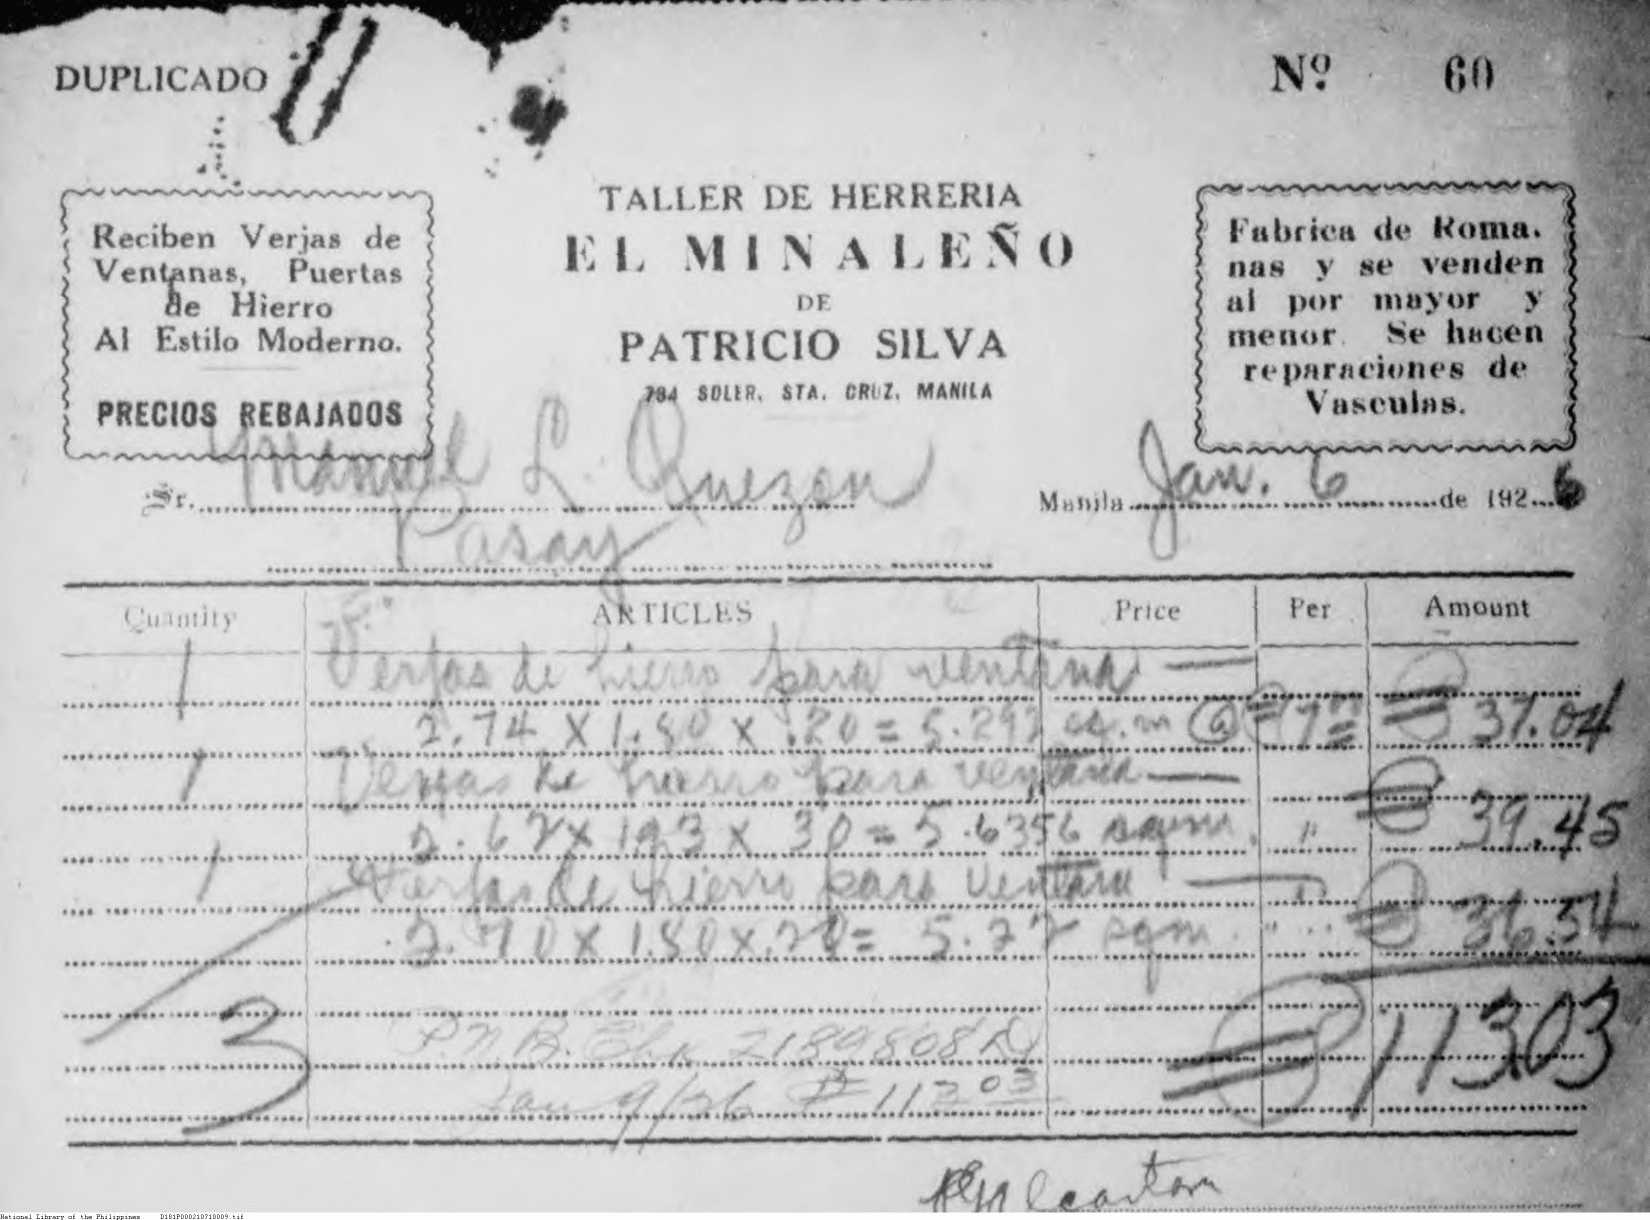 DUPLICADO
Nº 60
Reciben Verjas de
Ventanas, Puertas
de Hierro
Al Estilo Moderno.
PRECIOS REBAJADOS
TALLER DE HERRERIA
EL MINALEÑO
DE
PATRICIO SILVA
784 SOLER, STA. CRUZ, MANILA
Fabrica de Roma.
nas y se venden
al por mayor y
menor. Se hacen
reparaciones de
Vasculas.
Sr. Manuel L. Quezon
Manila Jan. 6 de 1926
Pasay
Quantity ARTICLES Price Per Amount
1 Verjas de hierro para ventana —
2.74 X 1.80 X .20 = 5.292 @ 7 37.04
1 Verjas de hierro para ventana —
2.67 X 193 X 30 = 5.6356 sqm. " 39.45
1 Verjas de hierro para ventana — "
2.70 X 1.80 X .20 = 5.22 sqm. " 36.54
3 ₱113.03
P.N.B. Ch. 2189808 D
Jan 9/26 ₱ 113.03